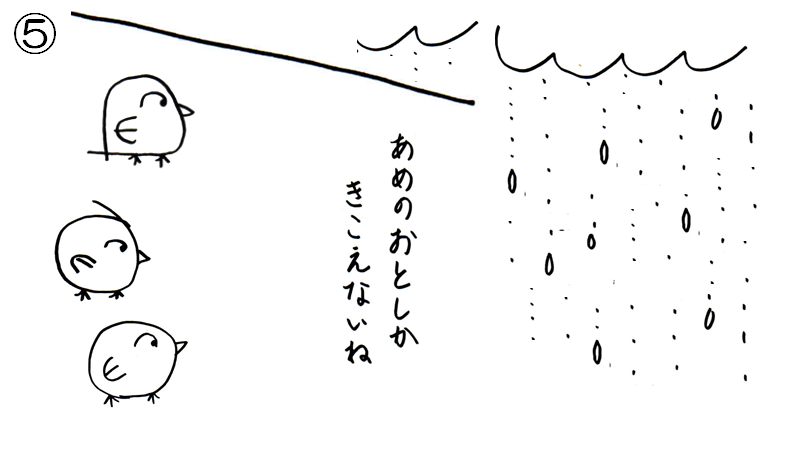 ⑤
あめのおとしか
きこえないね